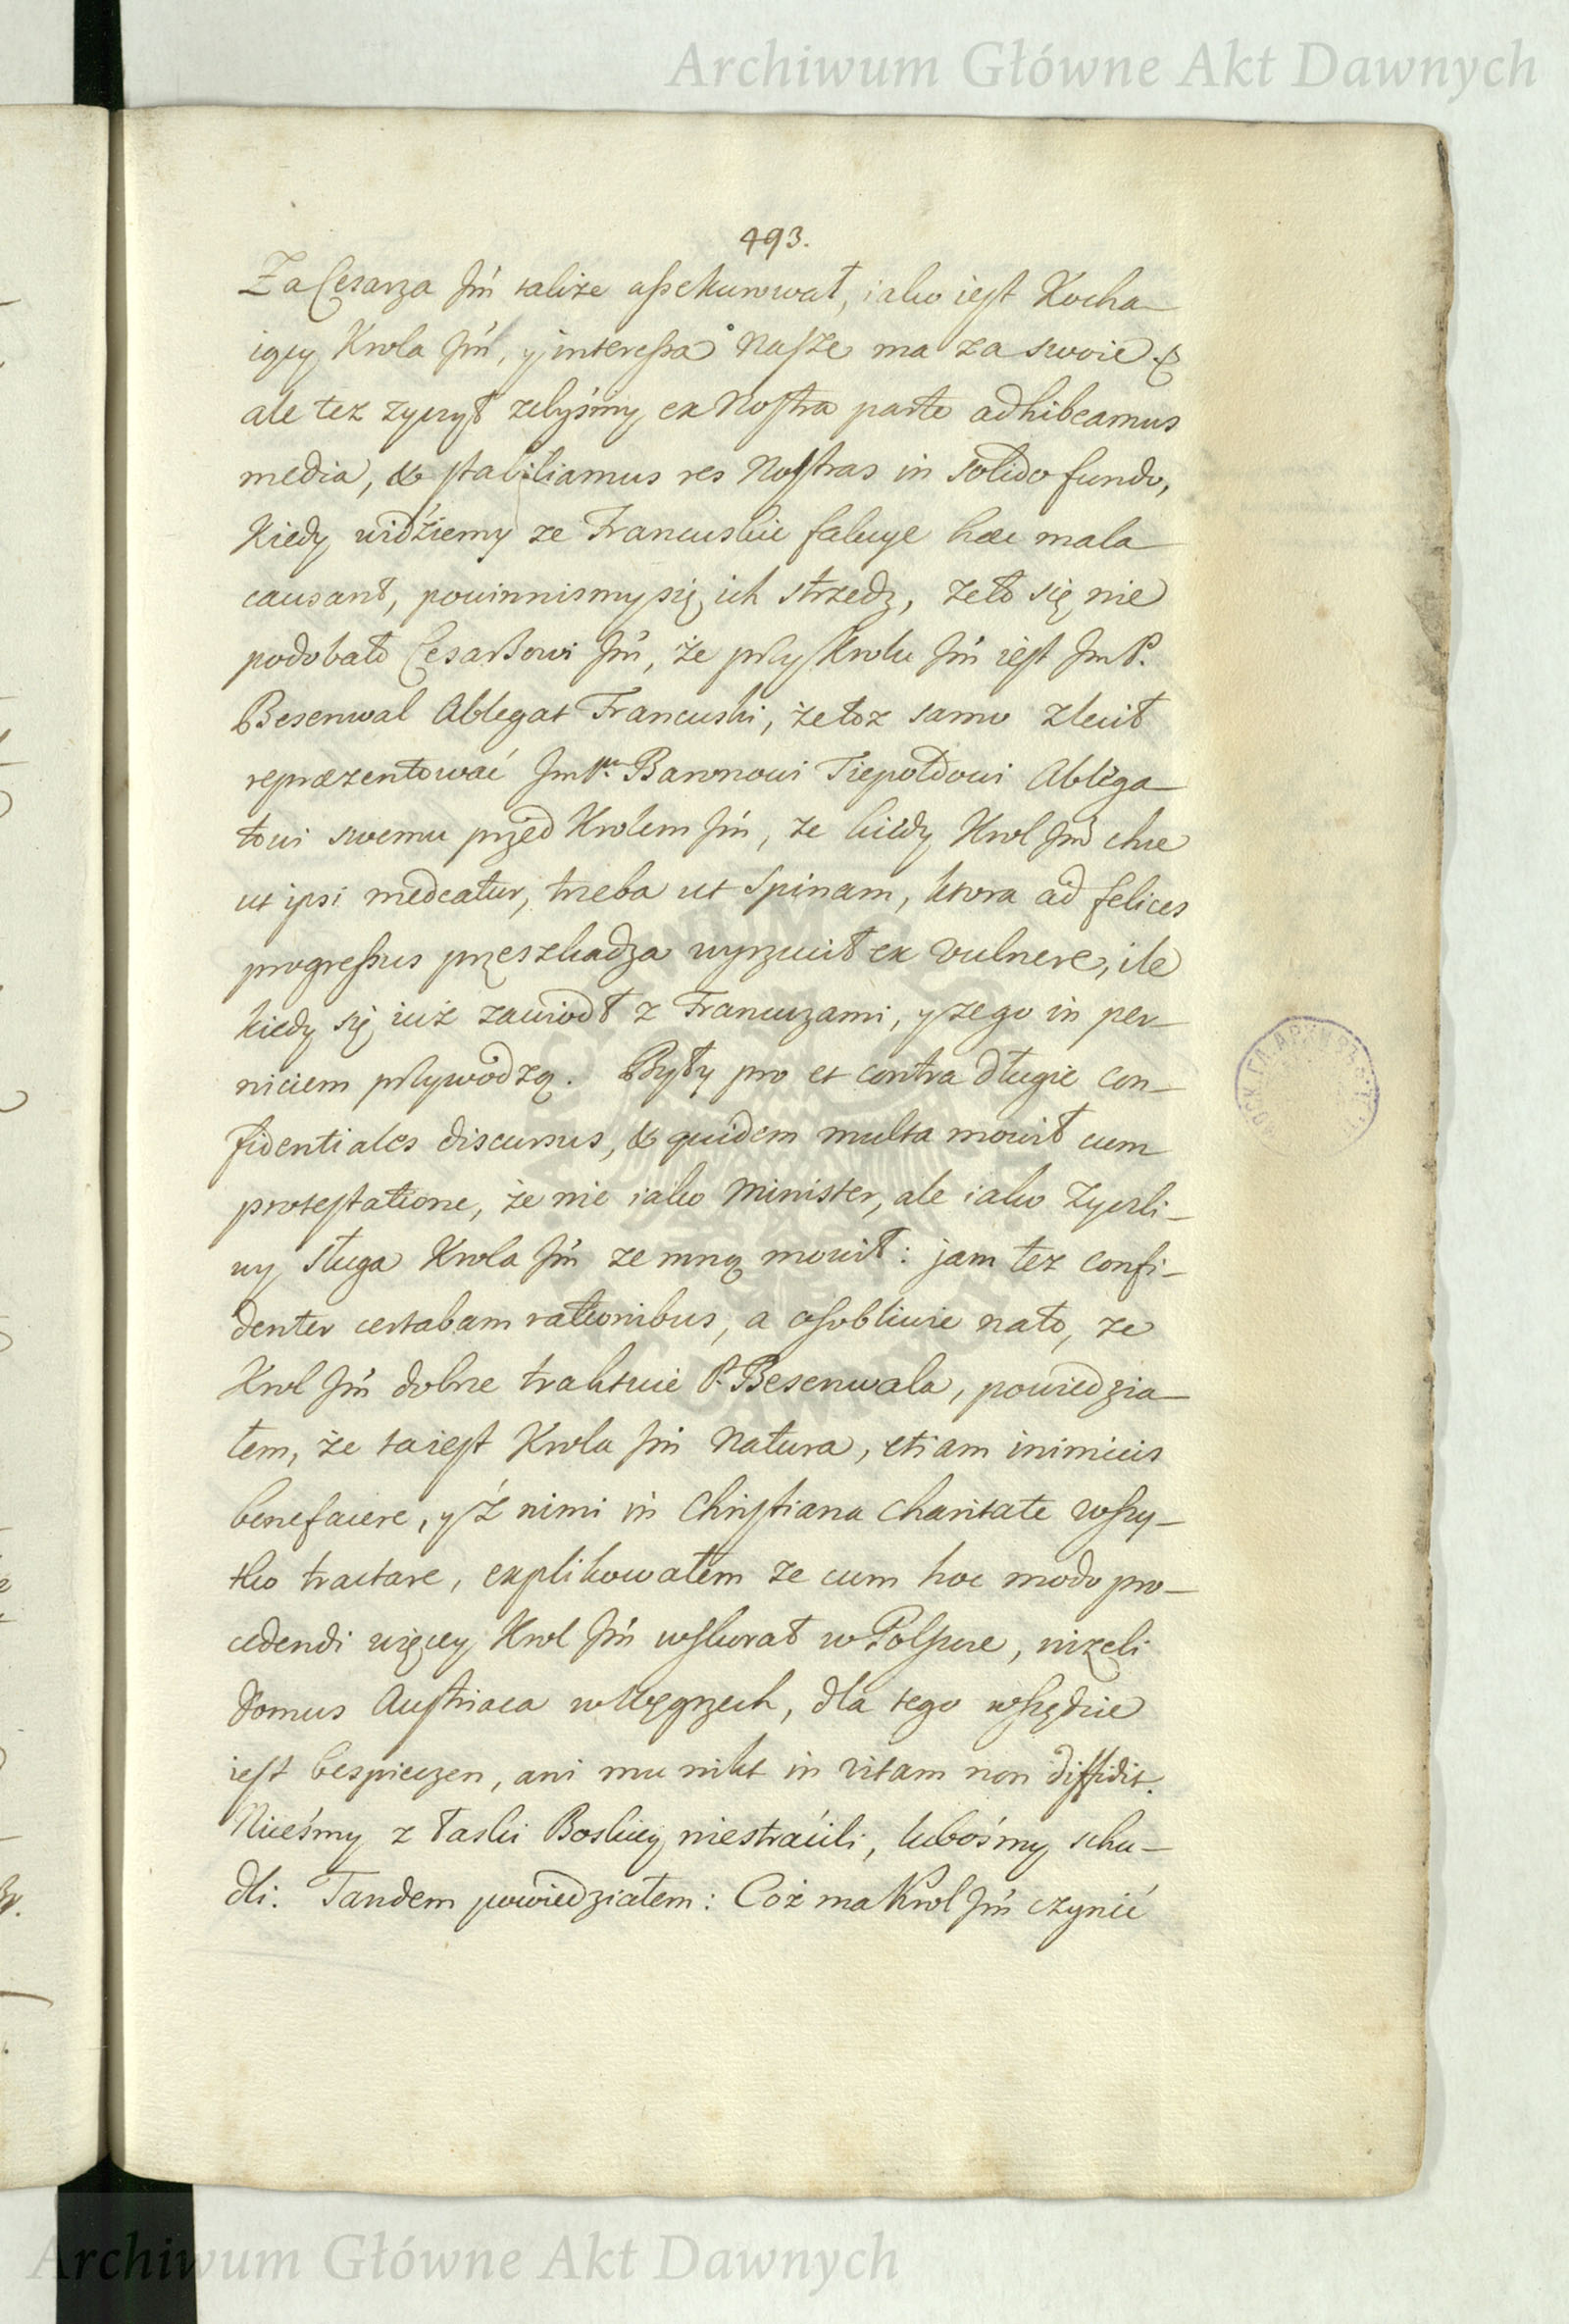 Archiwum Główne Akt Dawnych
493.
Za Cesarza Jm̃ takze assekurował, iako iest Kocha-
iący Krola Jm̃, y interessa Nasze ma za swoie &
ale tez zyczył zebyśmy ex Nostra parte adhibeamus
media, & stabiliamus res Nostras in solido fundo,
Kiedy widźiemy ze Francuskie factye hæc mala
causant, powinnismy się ich strzedz, ze to się nie
podobało Cesarzowi Jm̃, że przy Krolu Jm̃ iest Jm P.
Besenwal Ablegat Francuski, że toz samo zlecił
repræzentować Jm Pu Baronowi Tiepoldowi Ablega-
towi swemu przed Krolem Jm̃, ze kiedy Krol Jm̃ chce
ut ipsi medeatur, trzeba ut Spinam, ktora ad felices
progressus przeszkadza wyrzucił ex vulnere, ile
kiedy się iuż zawiodł z Francuzami, y ze go in per-
niciem przywodzą. Były pro et contra długie con-
fidentiales discursus, & quidem multa mowił cum
protestatione, że nie iako Minister, ale iako Zyczli-
wy Sługa Krola Jm̃ ze mną mowił: jam tez confi-
denter certabam rationibus, a osobliwie na to, ze
Krol Jm̃ dobrze traktuie P. Besenwala, powiedzia-
łem, że ta iest Krola Jm̃ Natura, etiam inimicis
benefacere, y Z nimi in Christiana Charitate wszy-
tko tractare, explikowałem ze cum hoc modo pro-
cedendi więcey Krol Jm̃ wskurał w Polszcze, niżeli
Domus Austriaca w Węgrzech, dla tego wszędzie
iest bespieczen, ani mu nikt in vitam non diffidit.
Niceśmy z łaski Boskiey niestraćili, lubośmy schu-
dli. Tandem powiedziałem: Coż ma Krol Jm̃ czynić
Archiwum Główne Akt Dawnych